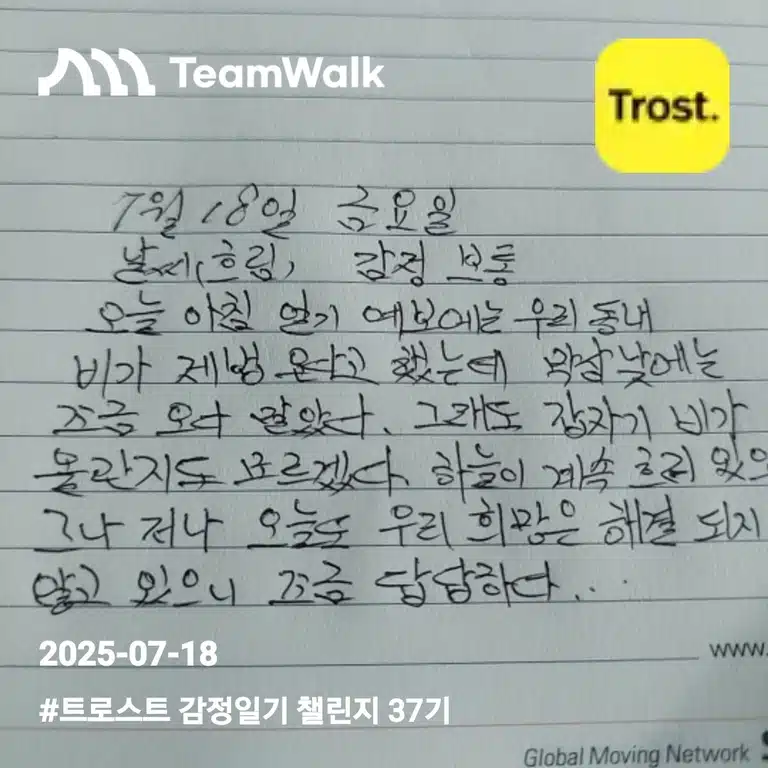 TeamWalk
Trost.
7월 18일 금요일
날씨(흐림) 감정 보통
오늘 아침 일기 예보에는 우리 동내
비가 제법 온다고 했는데 막상 낮에는
조금 오다 말았다. 그래도 갑자기 비가
올란지도 모르겠다 하늘이 계속 흐리 있으
그나 저나 오늘도 우리 희망은 해결 되지
않고 있으니 조금 답답하다...
2025-07-18
#트로스트 감정일기 챌린지 37기
www.
Global Moving Network